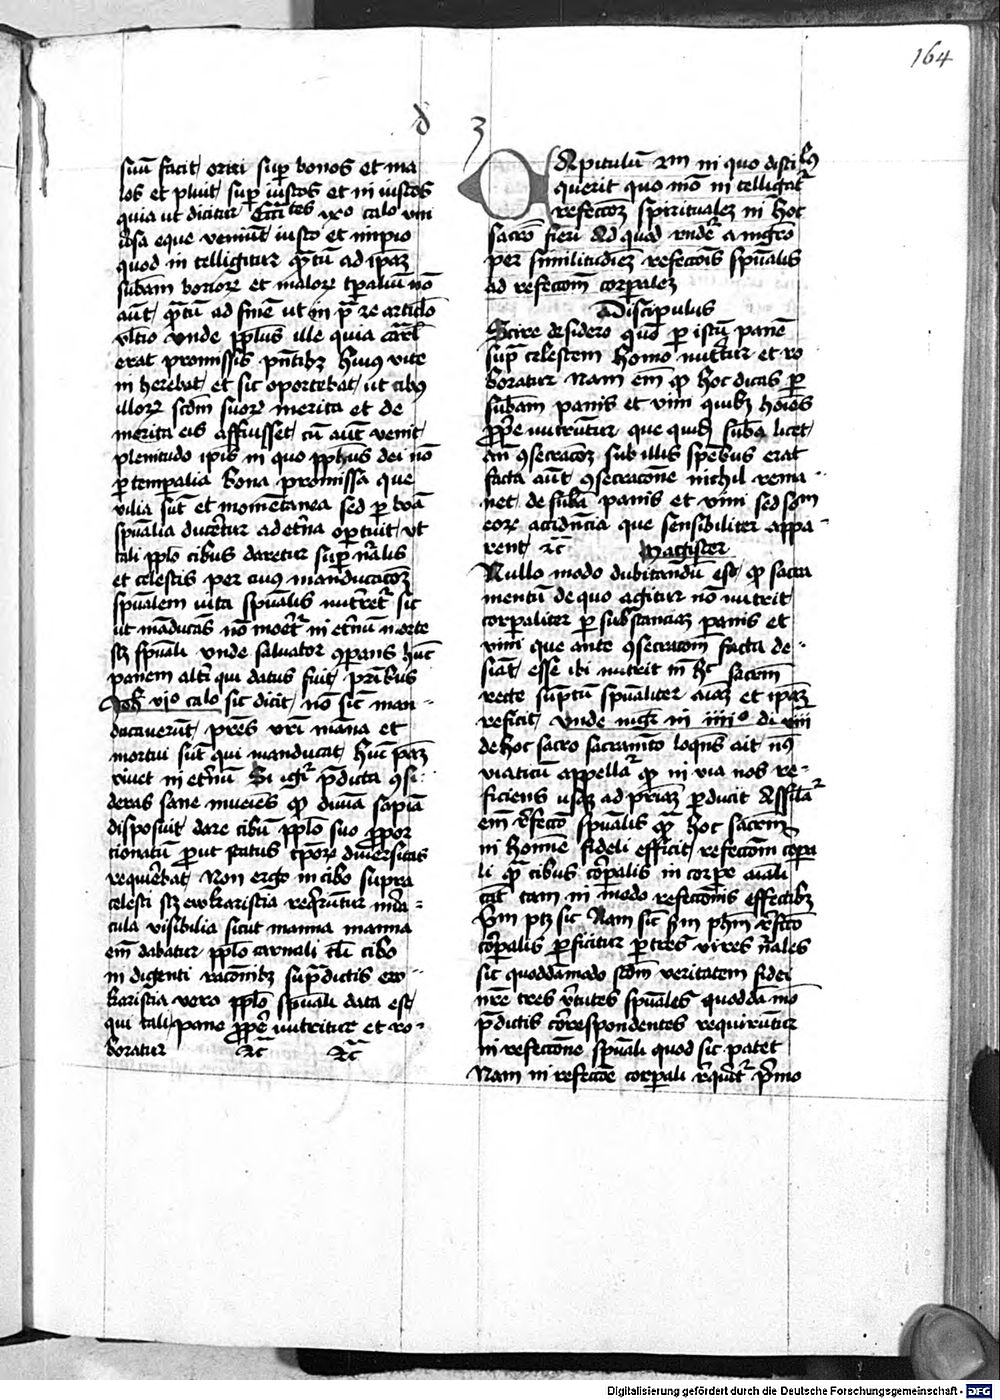 164
d 3
suū facit oriri sup bonos et ma
los et pluit sup iustos et in iustos
quia ut dicitur Ecctes ixo calo vni
usa eque veniūt iusto et impio
quod in telligitur qtū ad ipaz
subam bonorz et malorz tpaliū nō
aūt qtū ad finē ut in p re articlo
vltio vnde pplus ille quia carl
erat promissis pntibz huius vite
in herebat et sic oportebat ut cibus
illorz scdm suorz merita et de
merita eis affuisset cū aūt venit
plenitudo ipis in quo pphus dei nō
p temperalia bona promissa que
vilia sūt et momētanea sed p bōa
spūalia ducetur ad etna optuit ut
tali pplo cibus daretur sup nalis
et celestis per cuius manducacōz
spūalem uita spūalis nutretr sic
ut māducās nō moetr in etnū morte
scz spūali vnde saluator 9parans hūc
panem altri qui datus fuit pribus
Joh vio calo sic dicit nō sic man-
ducauerūt pres vri māna et
mortui sūt qui manducat hūc paz
viuet in etnū Si igr pdicta 9si-
deras sane inueies qp diuīa sapiā
disposuit dare cibū pplo suo ppor
tionatū put status tporz diuersitas
requirebat Non ergo in cibo supra
celesti scz ewkaristia reqruntur mira-
cula visibilia sicut manna manna
em dabatur pplo carnali tli cibo
in digenti racōnibz supdictis ew-
karistia vero pplo spūali data est
qui tali pane ppe nutritur et ro-
boratur &c &c
Capitulū xm in quo discipls
querit quo mō in telligatr
refeccōz spiritualez in hoc
sacro fieri Ad quod rndet a mgro
per similitudiez refeccōis spūalis
ad refeccōm corpalez
Discipulus
Scire desidero quō p istū panē
sup celestem homo nutritur et ro
boratur Nam em qp hoc dicas p
subam panis et vini quibz hoies
ppe nutruntur que quidz suba licet
an 9secracōz sub illis spēbus erat
facta aūt 9secracōne nichil rema-
net de suba panis et vini sed som
eorz accidncia que sensibiliter appa-
rent &c Magister
Nullo modo dubitandū est qp sacra
mentū de quo agitur nō nutrit
corpaliter p substanciaz panis et
vini que ante 9secracōm facta de-
siāt esse ibi nutrit in hc sacrm
recte suptū spūaliter aiaz et ipaz
reficit vnde mgr in iiiio di viii
de hoc sacro sacramēto loqns ait n9
viaticū appellar qp in via nos re-
ficiens usqz ad priaz pducit Assilar
em refeccō spūalis qz hoc sacrm
in homine fideli efficit refeccōm copa
li qz cibus copalis in corpe aiali
cit tam in modo refeccōnis effectibz
Prm ptz sic Nam sic prm phm refeccō
copalis pficitur p tres vires nales
sic quoddāmodo scdm veritatem fidei
nre tres vtutes spūales quodda mō
pdictis correspondentes requiruntur
in refeccōne spūali quod sic patet
Nam in refeccōe corpali requirt primo
Digitalisierung gefördert durch die Deutsche Forschungsgemeinschaft - DFG